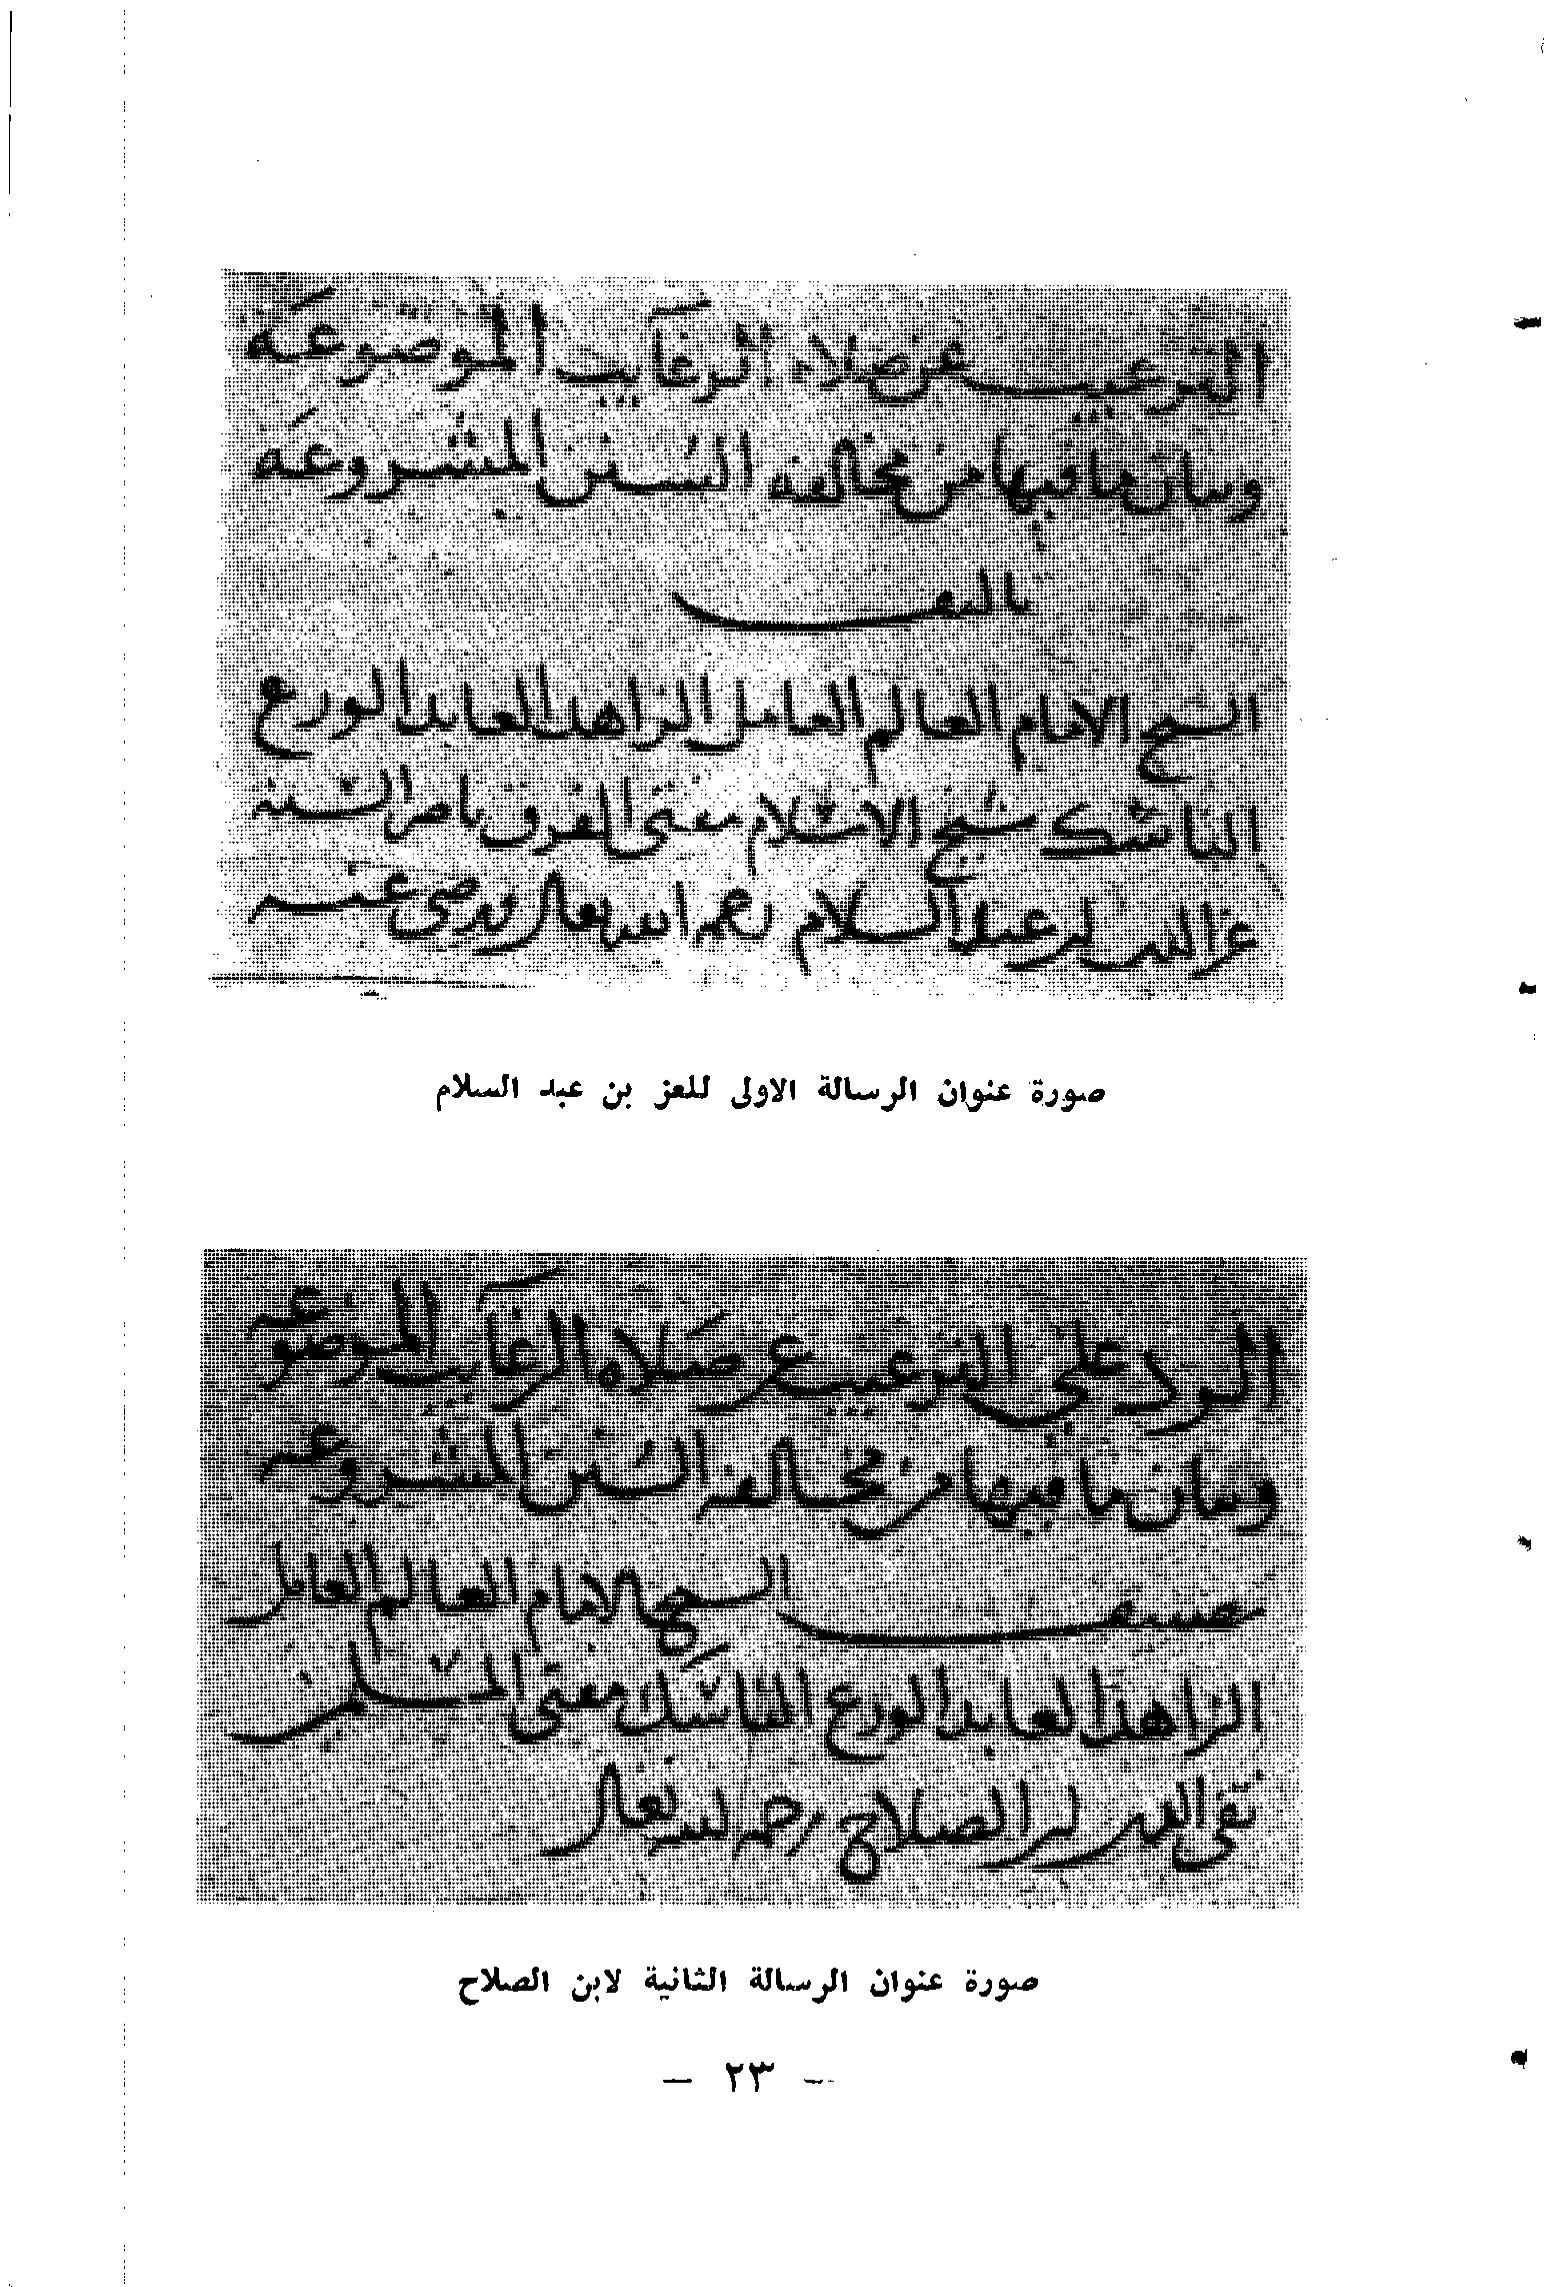 الترغيب عن صلاة الرغايب الموضوعة
وبيان ما فيها من مخالفة السنن المشروعة
تاليف
الشيخ الامام العالم العامل الزاهد العابد الورع
الناسك شيخ الاسلام مفتى الفرق ناصر السنة
عز الدين بن عبد السلام رحمه الله تعالى ورضى عنه
صورة عنوان الرسالة الاولى للعز بن عبد السلام
الرد على الترغيب عن صلاة الرغايب الموضوعة
وبيان ما فيها من مخالفة السنن المشروعة
تصنيف الشيخ الامام العالم العامل
الزاهد العابد الورع الناسك مفتى المسلمين
تقى الدين بن الصلاح رحمه الله تعالى
صورة عنوان الرسالة الثانية لابن الصلاح
— ٢٣ —